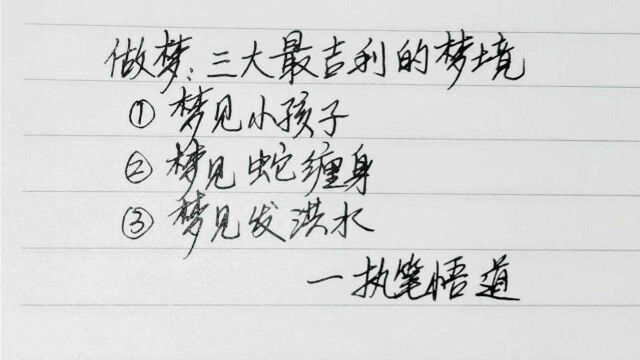 做梦:三大最吉利的梦境
① 梦见小孩子
② 梦见蛇缠身
③ 梦见发洪水
一执笔悟道